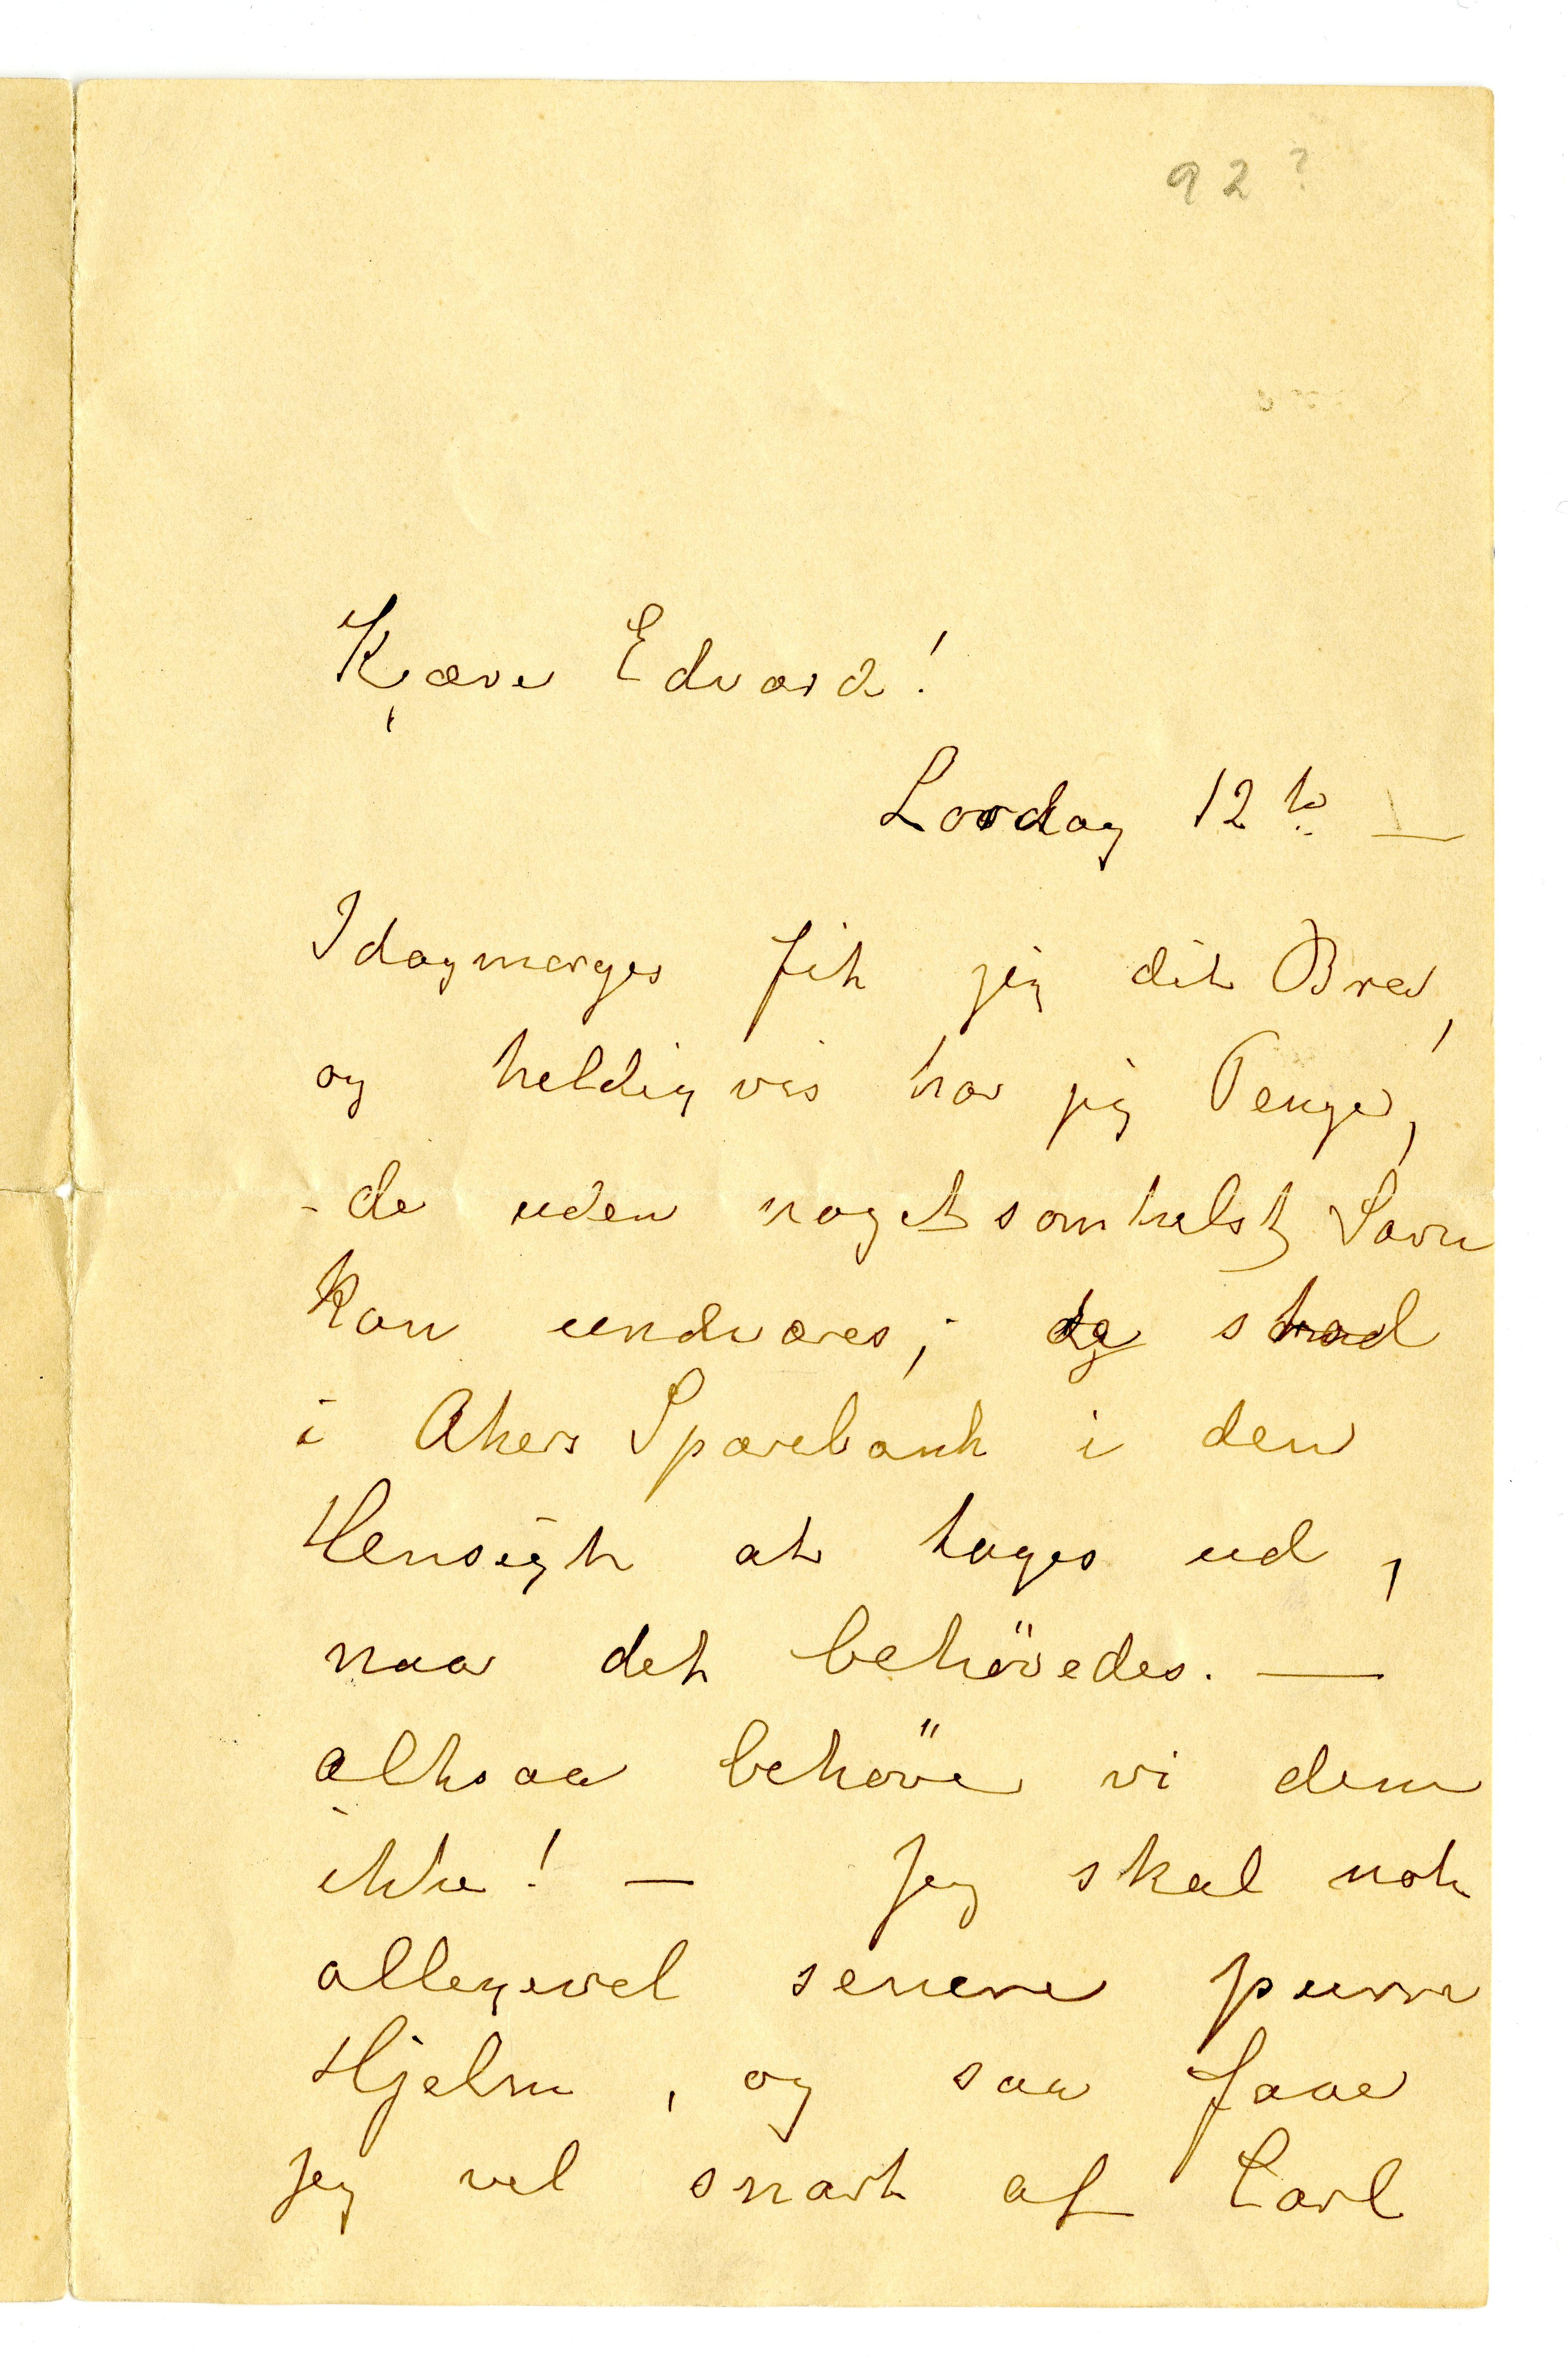 92?
Kjære Edvard!
Lordag 12te —
Idagmorges fik jeg dit Brev,
og heldigvis har jeg Penge,
- de uden noget somhelst Savn
kan undværes; de stod
i Akers Sparebank i den
Hensigt at tages ud,
naar det behövedes. —
altsaa behöve vi dem
ikke! — Jeg skal nok
alligevel senere purre
Hjelm, og saa faar
jeg vel snart af Carl